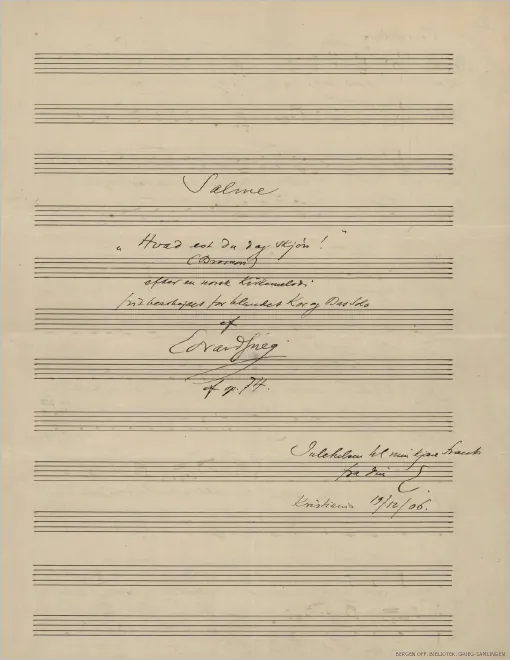 Salme
„Hvad est du dog skjön!"
(Brorson)
efter en norsk Kirkemelodi
frit bearbejdet for blandet Kor og Bas Solo
af
Edvard Grieg
af op. 74.
Julehilsen til min kjære Frants
fra din
Kristiania 19/12/06.
BERGEN OFF. BIBLIOTEK, GRIEG-SAMLINGEN